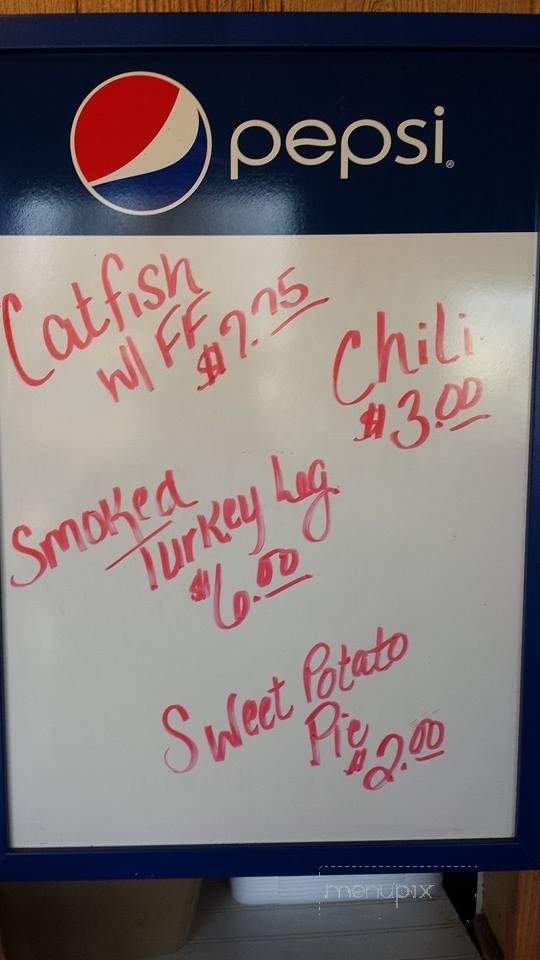 pepsi
Catfish
w/ FF
$7.75
Chili
$3.00
Smoked
Turkey Leg
$6.00
Sweet Potato
Pie
$2.00
menupix